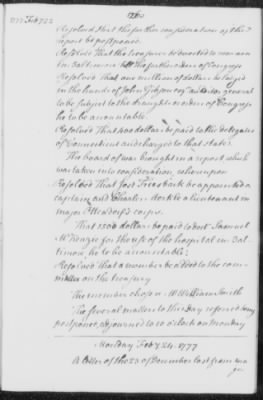 1777 Feby 22
Resolved that the further consideration of this
report be postponed.
Resolved That the treasurer be directed to remain
in Baltimore till the further order of Congress
Resolved that one million of dollars be lodged
in the hands of John Gibson esqr auditor general
to be subject to the draughts or orders of Congress
he to be accountable.
Resolved That 400 dollars be paid to the delegates
of Connecticut and charged to that state.
The board of war brought in a report which
was taken into consideration whereupon
Resolved That Jost Driesbach be appointed a
captain and Charles a lieutenant in
major Ottendorf's corps.
That 1500 dollars be paid to doctr Samuel
McKenzie for the use of the hospital in Bal
timore, he to be accountable;
Resolved that a member be added to the com
mittee on the treasury
The member chosen Mr William Smith
The several matters to this day referred being
postponed, adjourned to 10 o'clock on Monday
Monday Feby 24. 1777
A letter of the 23 of December last from ma
jr